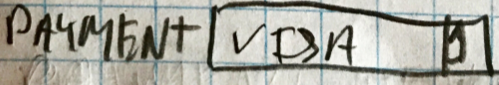 PAYMENT VISA